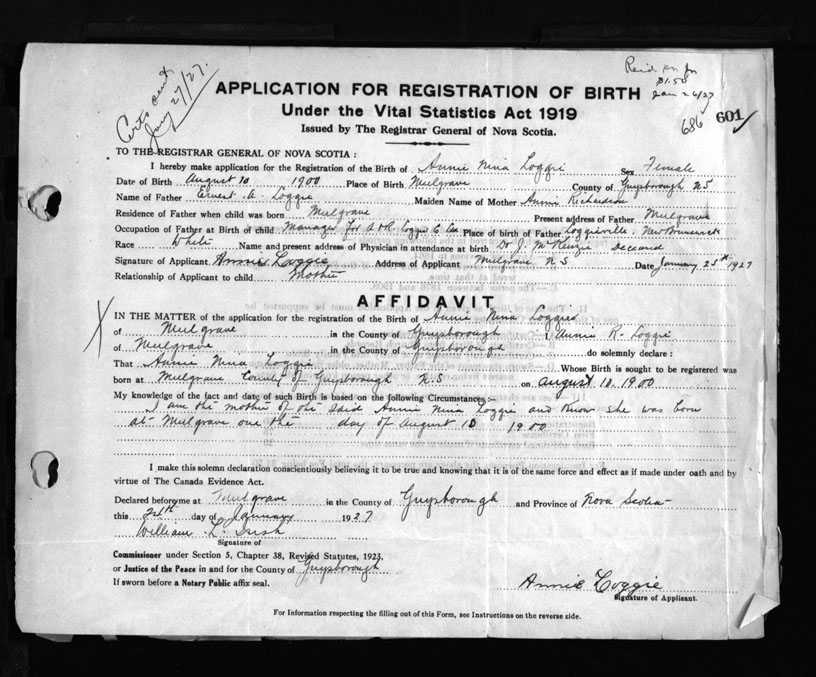 Certs sent
Jany 27/27.
Jan 26/27
686 601
APPLICATION FOR REGISTRATION OF BIRTH
Under the Vital Statistics Act 1919
Issued by The Registrar General of Nova Scotia.
TO THE REGISTRAR GENERAL OF NOVA SCOTIA:
I hereby make application for the Registration of the Birth of Annie Nina Loggie Sex Female
Date of Birth August 10 1900 Place of Birth Mulgrave County of Guysborough N S
Name of Father Ernest A. Loggie Maiden Name of Mother Annie Richardson
Residence of Father when child was born Mulgrave Present address of Father Mulgrave
Occupation of Father at Birth of child Manager for Loggie Place of birth of Father Loggieville New Brunswick
Race White Name and present address of Physician in attendance at birth Dr J. McKenzie Deceased
Signature of Applicant Annie Loggie Address of Applicant Mulgrave N S Date January 1927
Relationship of Applicant to child Mother
AFFIDAVIT
IN THE MATTER of the application for the registration of the Birth of Annie Nina Loggie
of Mulgrave in the County of Guysborough I Annie R. Loggie
of Mulgrave in the County of Guysborough do solemnly declare:
That Annie Nina Loggie Whose Birth is sought to be registered was
born at Mulgrave County of Guysborough N.S on august 10. 1900
My knowledge of the fact and date of such Birth is based on the following Circumstances:-
I am the mother of the said Annie Nina Loggie and know she was born
at Mulgrave on the day of August 10 1900
I make this solemn declaration conscientiously believing it to be true and knowing that it is of the same force and effect as if made under oath and by
virtue of The Canada Evidence Act.
Declared before me at Mulgrave in the County of Guysborough and Province of Nova Scotia
this day of January 1927
William L. Irish
Signature of
Commissioner under Section 5, Chapter 38, Revised Statutes, 1923.
or Justice of the Peace in and for the County of Guysborough
If sworn before a Notary Public affix seal.
Annie Loggie
Signature of Applicant.
For Information respecting the filling out of this Form, see Instructions on the reverse side.